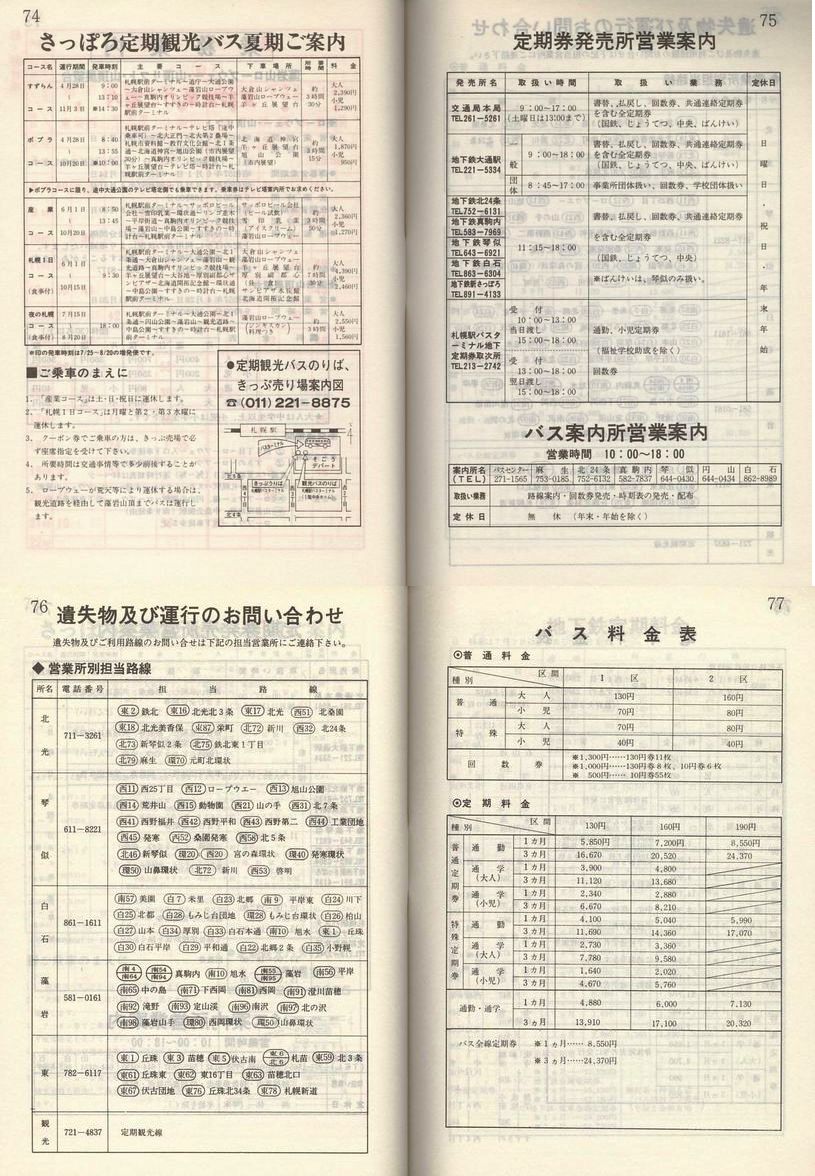 74
さっぽろ定期観光バス夏期ご案内
コース名 運行期間 発車時刻 主要コース 下車場所 所要時間 料金
すずらん
コース
4月28日
11月3日
9:00
13:10
※14:30
札幌駅前ターミナル～道庁～大通公園
大倉山シャンツェ
羊ヶ丘展望台
約
3時間
30分
大人
2,390円
小児
1,290円
ポプラ
コース
4月28日
10月20日
8:40
13:55
※10:00
北海道神宮
羊ヶ丘展望台
旭山公園
(市内展望)
約
3時間
15分
大人
1,870円
小児
950円
▶ポプラコースに限り、途中大通公園のテレビ塔北側でも乗車できます。乗車券はテレビ塔案内所でお求めください。
産業
コース
6月1日
10月20日
8:50
13:45
サッポロビール会社
(ビール試飲)
雪印乳業
(アイスクリーム)
藻岩山ロープウェー
約
3時間
50分
大人
2,360円
小児
1,270円
札幌1日
コース
(食事付)
6月1日
10月15日
9:30
大倉山シャンツェ
藻岩山ロープウェー
羊ヶ丘展望台
(昼食)
北海道開拓記念館
大人
4,390円
小児
2,460円
夜の札幌
コース
(食事付)
7月15日
8月20日
18:00
藻岩山ロープウェー
(ジンギスカン料理つき)
約
3時間
30分
大人
2,550円
小児
1,560円
※印の発車時刻は7/25～8/20の増発便です。
■ご乗車のまえに
1. 「産業コース」は土・日・祝日に運休します。
2. 「札幌1日コース」は月曜と第2・第3水曜に
運休します。
3. クーポン券でご乗車の方は、きっぷ売場で必
ず座席指定を受けて下さい。
4. 所要時間は交通事情等で多少前後することが
あります。
5. ロープウェーが荒天等により運休する場合は、
観光道路を経由して藻岩山頂までバスは運行し
ます。
●定期観光バスのりば、
きっぷ売り場案内図
☎(011)221-8875
札幌駅
バスターミナル
そごうデパート
きっぷうりば
観光バスのりば
北5条
北4条
75
定期券発売所営業案内
発売所名 取扱い時間 取扱い業務 定休日
交通局本局
TEL261-5261
9:00~17:00
(土曜日は13:00まで)
書替、払戻し、回数券、共通連絡定期券
を含む全定期券
(国鉄、じょうてつ、中央、ばんけい)
地下鉄大通駅
TEL221-5334
一般
9:00~18:00
書替、払戻し、回数券、共通連絡定期券
を含む全定期券
(国鉄、じょうてつ、中央、ばんけい)
団体
8:45~17:00
事業所団体扱い、回数券、学校団体扱い
地下鉄北24条
TEL752-6131
地下鉄真駒内
TEL583-7969
地下鉄琴似
TEL643-6921
地下鉄白石
TEL863-6304
地下鉄新さっぽろ
TEL891-4133
11:15~18:00
書替、払戻し、回数券、共通連絡定期券
を含む全定期券
(国鉄、じょうてつ、中央)
※ばんけいは、琴似のみ扱い。
札幌駅バスターミナル地下
定期券取次所
TEL213-2742
受付
10:00~13:00
当日渡し
15:00~18:00
受付
13:00~18:00
翌日渡し
15:00~18:00
通勤、小児定期券
(福祉学校助成を除く)
回数券
日曜日・祝日・年末年始
バス案内所営業案内
営業時間 10:00~18:00
案内所名 バスセンター 麻生 北24条 真駒内 琴似 円山 白石
(TEL) 271-1565 753-0185 752-6132 582-7837 644-0430 644-0434 862-8989
取扱い業務 路線案内・回数券発売・時刻表の発売・配布
定休日 無休 (年末・年始を除く)
76
遺失物及び運行のお問い合わせ
遺失物及びご利用路線のお問い合せは下記の担当営業所にご連絡下さい。
◆営業所別担当路線
所名 電話番号 担当路線
北光 711-3261
東2 鉄北 東16 北光北3条 東17 北光 西51 北桑園
東18 北光美香保 東87 栄町 北72 新川 西32 北24条
北73 新琴似2条 北75 鉄北東1丁目
北79 麻生 環70 元町北環状
琴似 611-8221
西11 西25丁目 西12 ロープウエー 西13 旭山公園
西14 荒井山 西15 動物園 西21 山の手 西31 北7条
西41 西野福井 西42 西野平和 西43 西野第二 西44 工業団地
西45 発寒 西52 桑園発寒 西58 北5条
北46 新琴似 環20 西20 宮の森環状 環40 発寒環状
環50 山鼻環状 北72 新川 西53 啓明
白石 861-1611
南57 美園 白7 米里 白23 北郷 南9 平岸東 白24 川下
白25 北都 白28 もみじ台団地 環28 もみじ台環状 白26 柏山
白27 山本 白34 厚別 白33 白石本通 南10 旭水 東1 丘珠
白30 白石平岸 白29 平和通 白22 北郷2条 白35 小野幌
藻岩 581-0161
南4 南54 南64 南94 真駒内 南10 旭水 南55 南95 藻岩 南56 平岸
南65 中の島 南71 下西岡 南81 西岡 南91 澄川苗穂
南92 滝野 南93 定山渓 南96 南沢 南97 北の沢
南98 藻岩山手 環80 西岡環状 環50 山鼻環状
東 782-6117
東1 丘珠 東3 苗穂 東5 伏古南 東6 北6 札苗 東59 北3条
東61 丘珠東 東62 東16丁目 東63 苗穂北口
東67 伏古団地 東76 丘珠北34条 東78 札幌新道
観光 721-4837 定期観光線
77
バス料金表
⊙普通料金
種別 区間 1区 2区
普通 大人 130円 160円
小児 70円 80円
特殊 大人 70円 80円
小児 40円 40円
回数券
※1,300円……130円券11枚
※1,000円……130円券8枚、10円券6枚
※ 500円…… 10円券55枚
⊙定期料金
種別 区間 130円 160円 190円
普通定期券 通勤 1カ月 5,850円 7,200円 8,550円
3カ月 16,670 20,520 24,370
通学(大人) 1カ月 3,900 4,800
3カ月 11,120 13,680
通学(小児) 1カ月 2,340 2,880
3カ月 6,670 8,210
特殊定期券 通勤 1カ月 4,100 5,040 5,990
3カ月 11,690 14,360 17,070
通学(大人) 1カ月 2,730 3,360
3カ月 7,780 9,580
通学(小児) 1カ月 1,640 2,020
3カ月 4,670 5,760
通勤・通学 1カ月 4,880 6,000 7,130
3カ月 13,910 17,100 20,320
バス全線定期券 ※1ヵ月……8,550円
※3ヵ月……24,370円